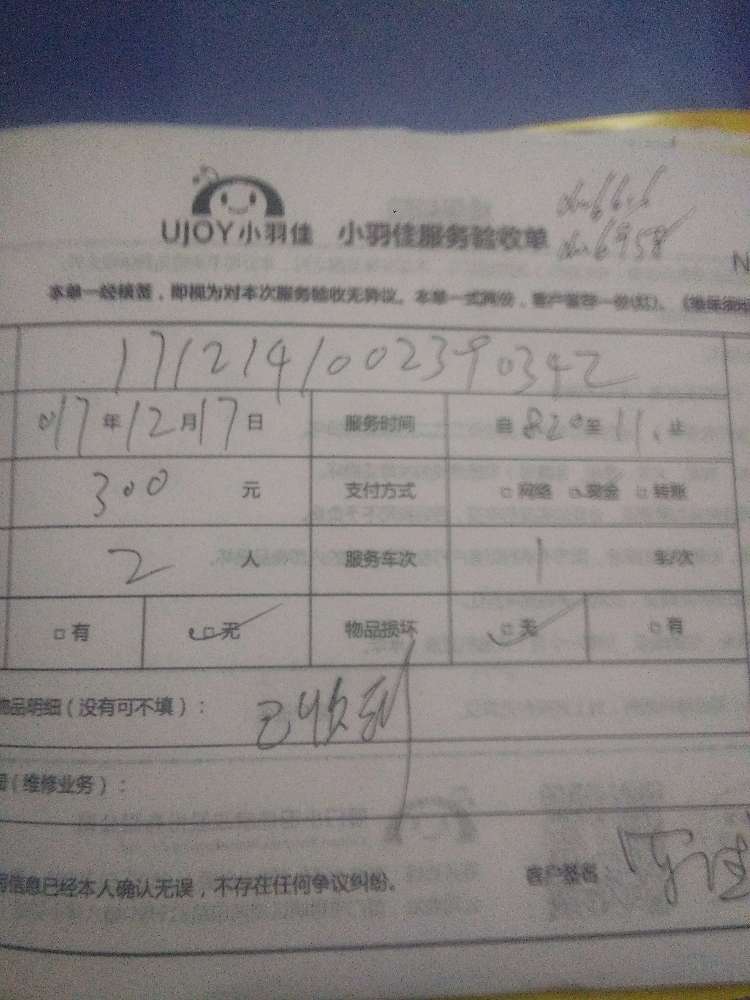 UJOY小羽佳 小羽佳服务验收单
本单一经核签，即视为对本次服务验收无异议。本单一式两份，客户留存一份(红)。
1712141002390342
017年12月17日 服务时间 自 820 至 11. 止
300 元 支付方式 □网络 □现金 □转账
2 人 服务车次 1 车/次
□有 □无 物品损坏 □无 □有
物品明细（没有可不填）： 已收到
（维修业务）：
信息已经本人确认无误，不存在任何争议纠纷。 客户签字